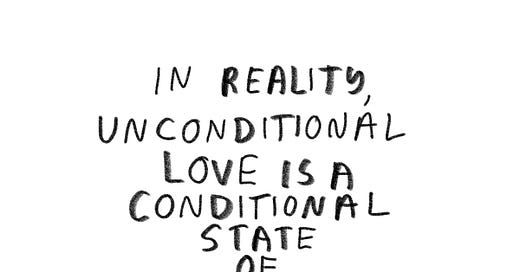 IN REALITY,
UNCONDITIONAL
LOVE IS A
CONDITIONAL
STATE
OF